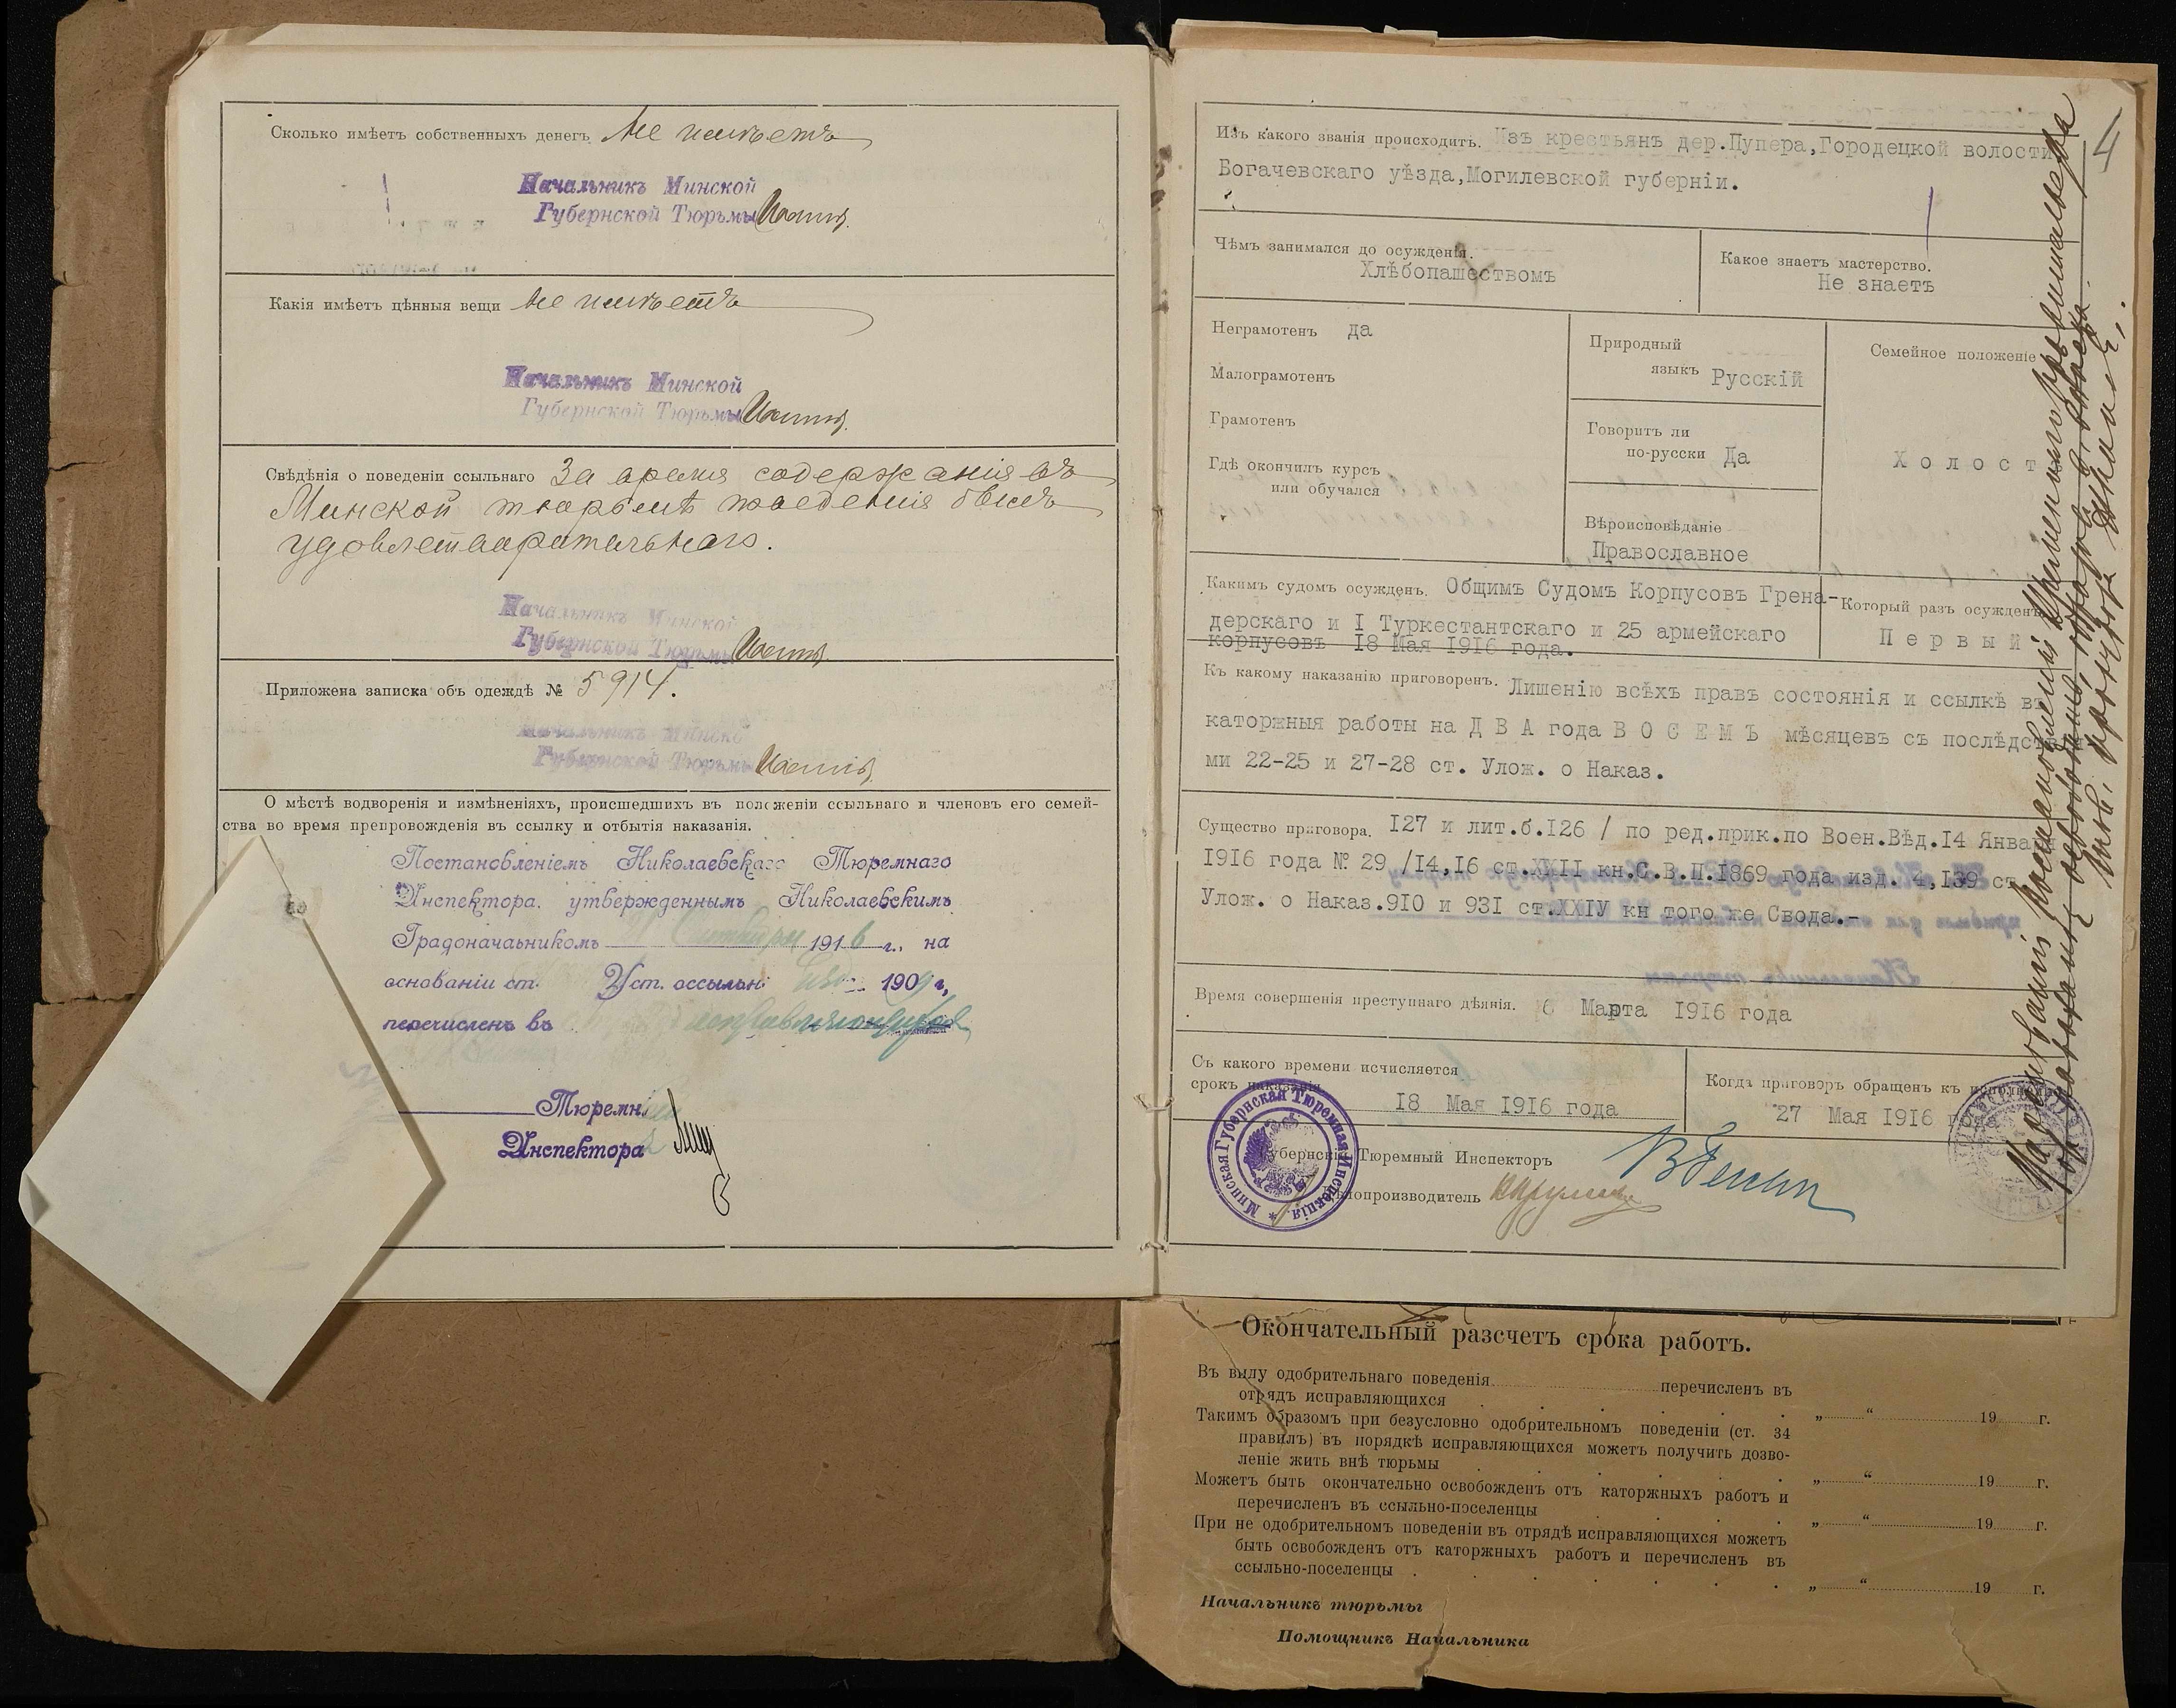 Сколько имѣетъ собственныхъ денегъ. Не имѣетъ
Начальникъ Минской
Губернской Тюрьмы
Какія имѣетъ цѣнныя вещи Не имѣетъ
Начальникъ Минской
Губернской Тюрьмы
Свѣдѣнія о поведеніи ссыльнаго За время содержанія въ
Минской тюрьмѣ поведенія былъ
удовлетварательнаго.
Начальникъ Минской
Губернской Тюрьмы
Приложена записка объ одеждѣ № 5914.
Начальникъ Минско
Губернской Тюрьмы
О мѣстѣ водворенія и измѣненіяхъ, происшедшихъ въ положеніи ссыльнаго и членовъ его семей-
ства во время препровожденія въ ссылку и отбытія наказанія.
Постановленіемъ Николаевскаго Тюремнаго
Инспектора, утвержденнымъ Николаевскимъ
Градоначаьникомъ 1916 г., на
основаніи ст. Уст. оссыльн. изд. 1909 г,
перечисленъ въ исправляющихся
Тюремн.
Инспектора
4
Изъ какого званія происходитъ. Изъ крестьянъ дер.Пупера,Городецкой волости
Богачевскаго уѣзда,Могилевской губерніи.
Чѣмъ занимался до осужденія.
Хлѣбопашествомъ
Какое знаетъ мастерство.
Не знаетъ
Неграмотенъ да
Малограмотенъ
Грамотенъ
Гдѣ окончилъ курсъ
или обучался
Природный
языкъ Русскій
Говоритъ ли
по-русски Да
Вѣроисповѣданіе
Православное
Семейное положеніе
Холост
Какимъ судомъ осужденъ. Общимъ Судомъ Корпусовъ Грена-
дерскаго и I Туркестантскаго и 25 армейскаго
корпусовъ 18 Мая 1916 года.
Который разъ осужденъ
Первый
Къ какому наказанію приговоренъ. Лишенію всѣхъ правъ состоянія и ссылкѣ въ
каторжныя работы на ДВА года ВОСЕМЪ мѣсяцевъ съ послѣдстві
ми 22-25 и 27-28 ст. Улож. о Наказ.
Существо приговора. 127 и лит.б.126 / по ред.прик.по Воен.Вѣд.14 Января
1916 года № 29 /14,16 ст.XXII кн.С.В.П.1869 года изд. 4,139 ст.
Улож. о Наказ.910 и 931 ст.XXIУ кн того же Свода.-
Время совершенія преступнаго дѣянія. 6 Марта 1916 года
Съ какого времени исчисляется
срокъ наказанія
18 Мая 1916 года
Когда приговоръ обращенъ къ исполненію
27 Мая 1916 года
Губернскій Тюремный Инспекторъ
Дѣлопроизводитель
Минская Губернская Тюремная Инспекція.
На основаніи постановленія Временнаго правительства
Окончательный разсчетъ срока работъ.
Въ виду одобрительнаго поведенія перечисленъ въ
отрядъ исправляющихся „ “ 19 г.
Такимъ образомъ при безусловно одобрительномъ поведеніи (ст. 34
правилъ) въ порядкѣ исправляющихся можетъ получить дозво-
леніе жить внѣ тюрьмы „ “ 19 г.
Можетъ быть окончательно освобожденъ отъ каторжныхъ работъ и
перечисленъ въ ссыльно-поселенцы „ “ 19 г.
При не одобрительномъ поведеніи въ отрядѣ исправляющихся можетъ
быть освобожденъ отъ каторжныхъ работъ и перечисленъ въ
ссыльно-поселенцы „ “ 19 г.
Начальникъ тюрьмы
Помощникъ Начальника